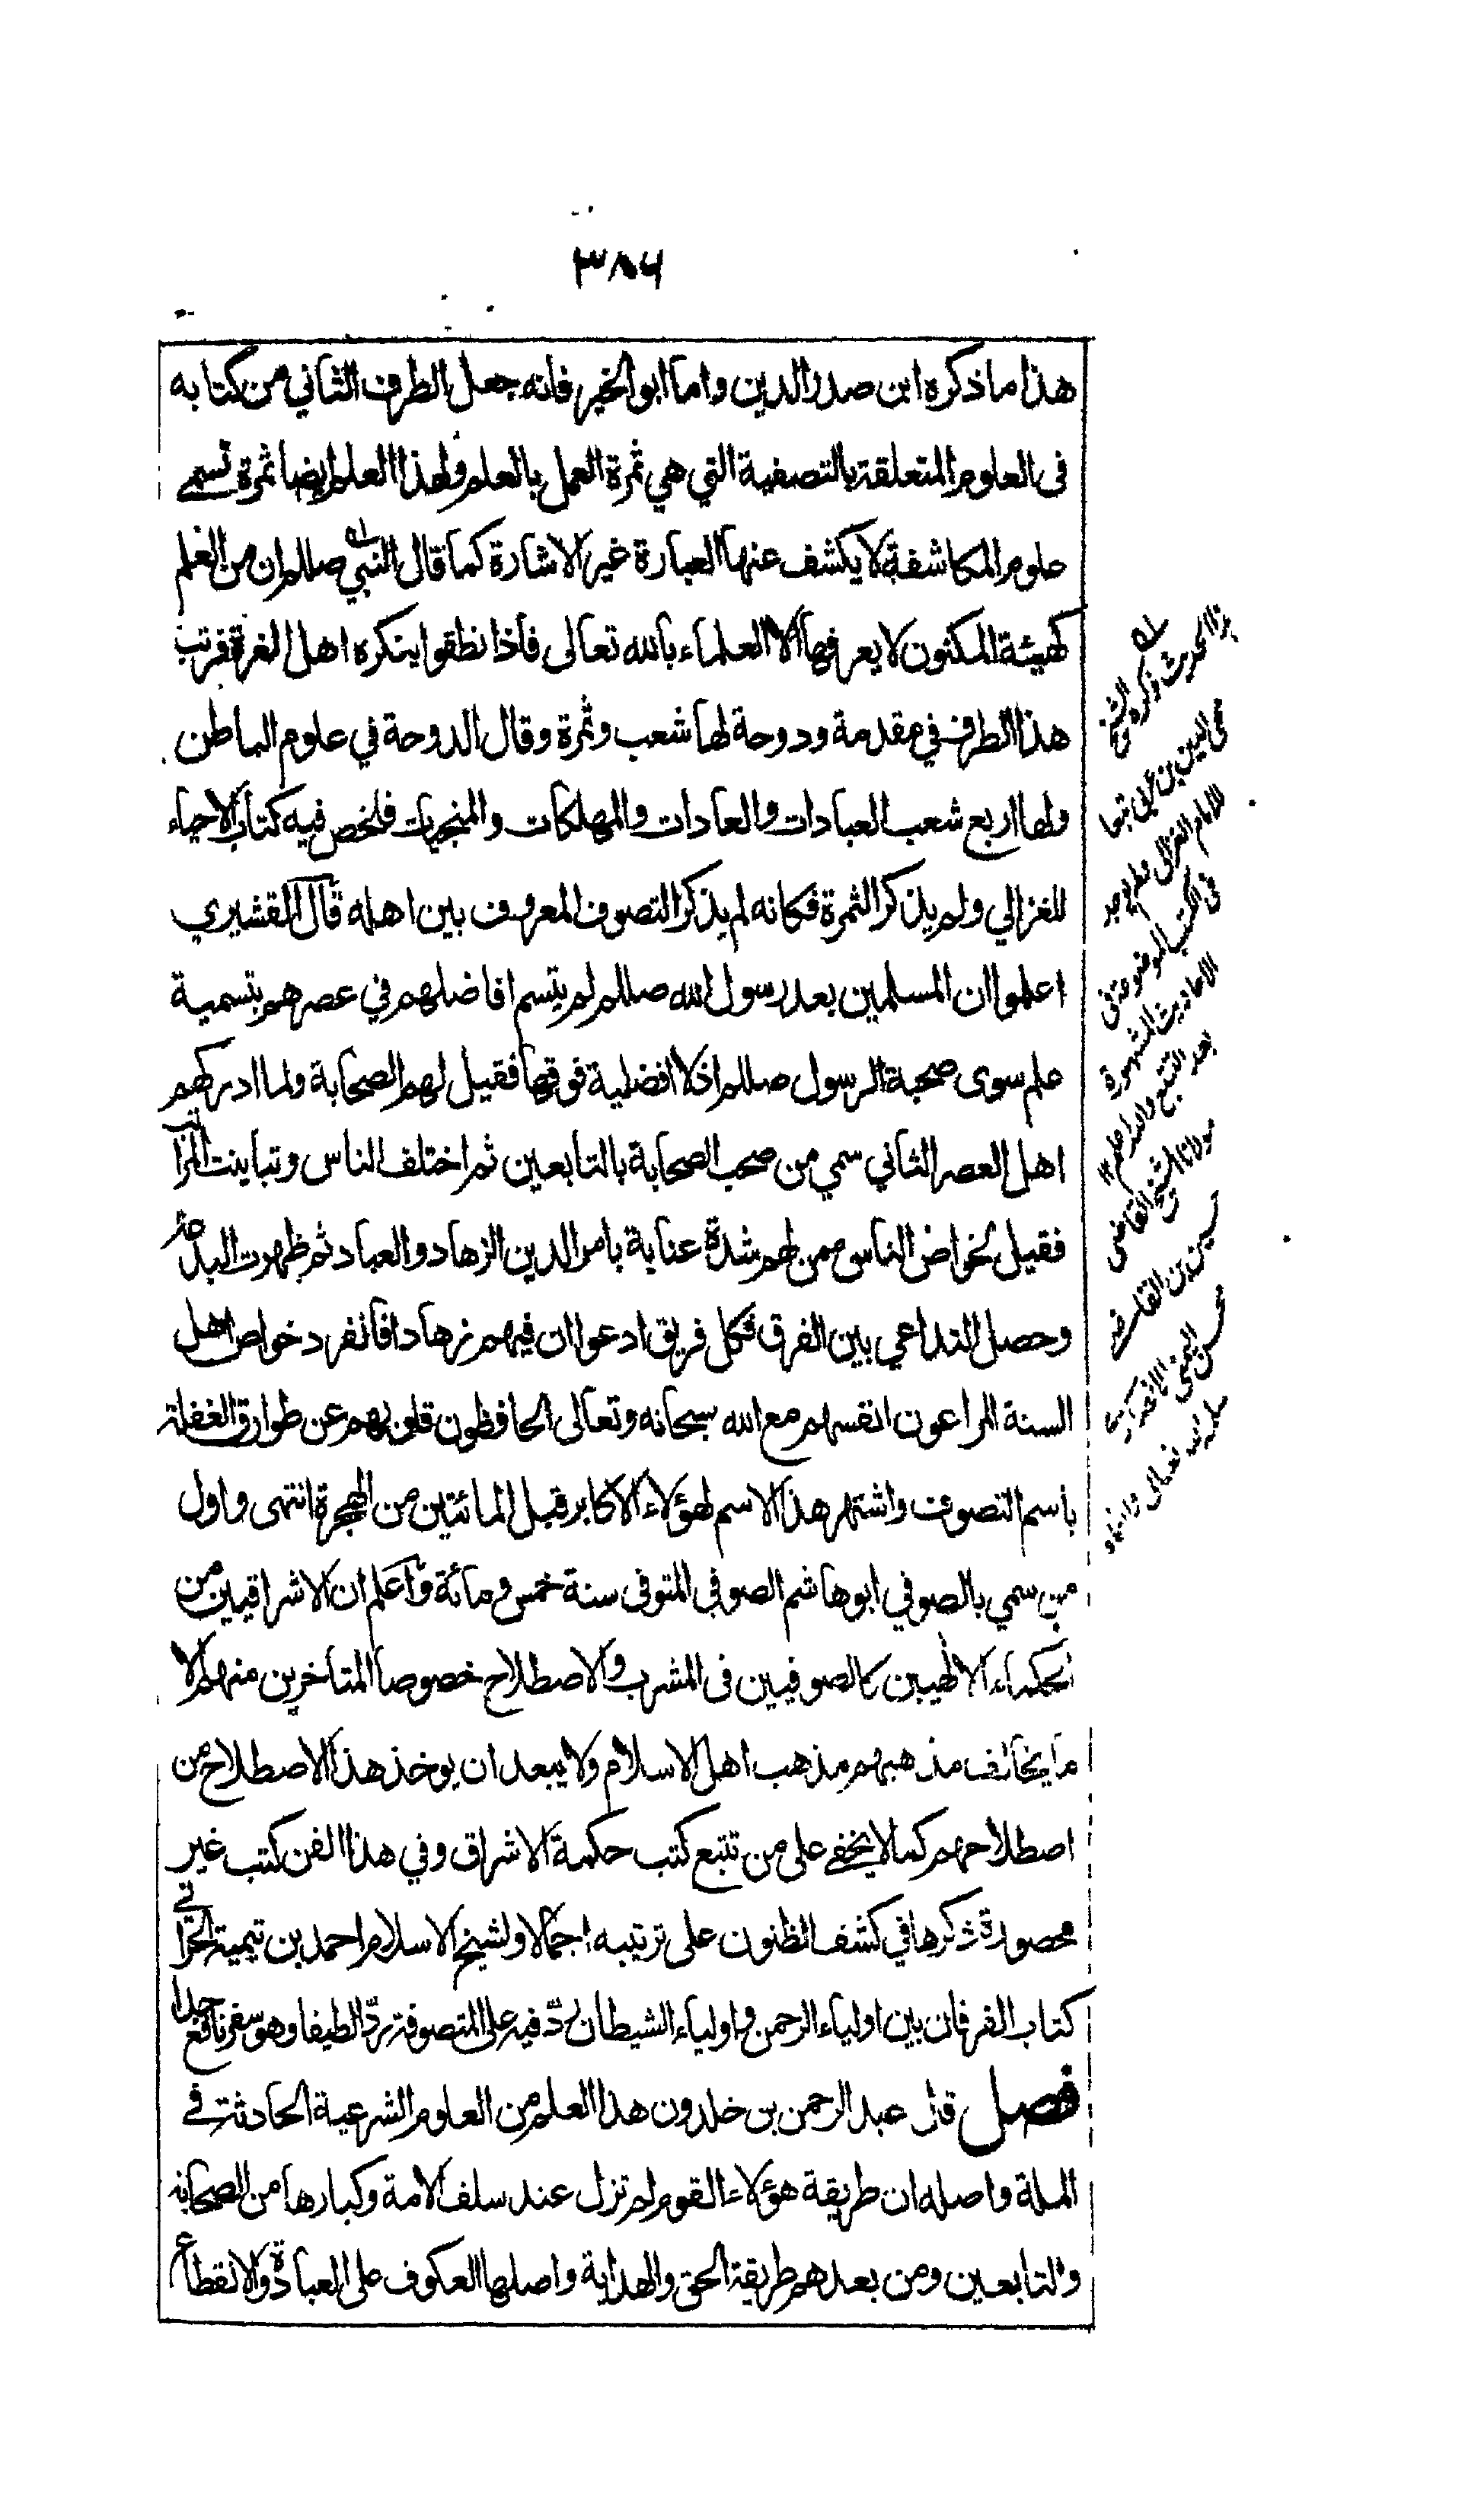 ٣٨٦
هذا ما ذكره ابن صدر الدين واما ابو الخير فانه جعل الطرف الثاني من كتابه
فى العلوم المتعلقة بالتصفية التي هي ثمرة العمل بالعلم ولهذا العلم ايضا ثمرة تسمى
علوم المكاشفة لا يكشف عنها العبارة غير الاشارة كما قال النبي صللم ان من العلم
كهيئة المكنون لا يعرفها الا العلماء بالله تعالى فاذا نطقوا ينكره اهل الغرة فرتب
هذا الطرف في مقدمة ودوحة لها شعب وثمرة وقال الدوحة في علوم الباطن
ولها اربع شعب العبادات والعادات والمهلكات والمنجيات فلخص فيه كتاب الاحياء
للغزالي ولم يذكر الثمرة فكانه لم يذكر التصوف المعروف بين اهله قال القشيري
اعلموا ان المسلمين بعد رسول الله صللم لم يتسم افاضلهم في عصرهم بتسمية
علم سوى صحبة الرسول صللم اذ لا افضلية فوقها فقيل لهم الصحابة ولما ادركهم
اهل العصر الثاني سمي من صحب الصحابة بالتابعين ثم اختلف الناس وتباينت المراتب
فقيل لخواص الناس ممن لهم شدة عناية بامر الدين الزهاد والعباد ثم ظهرت البدعة
وحصل التداعي بين الفرق فكل فريق ادعوا ان فيهم زهادا فانفرد خواص اهل
السنة المراعون انفسهم مع الله سبحانه وتعالى الحافظون قلوبهم عن طوارق الغفلة
باسم التصوف واشتهر هذا الاسم لهؤلاء الاكابر قبل المائتين من الهجرة انتهى واول
من سمي بالصوفي ابو هاشم الصوفي المتوفى سنة خمس ومائة واعلم ان الاشراقيين من
الحكماء الالهيين كالصوفيين فى المشرب والاصطلاح خصوصا المتاخرين منهم الا
ما يخالف مذهبهم مذهب اهل الاسلام ولا يبعد ان يوخذ هذا الاصطلاح من
اصطلاحهم كما لا يخفى على من تتبع كتب حكمة الاشراق وفي هذا الفن كتب غير
محصورة ذكرها في كشف الظنون على ترتيبه اجمالا ولشيخ الاسلام احمد بن تيمية الحراني
كتاب الفرقان بين اولياء الرحمن واولياء الشيطان ردّ فيه على المتصوفة ردّا لطيفا وهو سفر نافع جدا
فصل قال عبد الرحمن بن خلدون هذا العلم من العلوم الشرعية الحادثة في
الملة واصله ان طريقة هؤلاء القوم لم تزل عند سلف الامة وكبارها من الصحابة
والتابعين ومن بعدهم طريقة الحق والهداية واصلها العكوف على العبادة والانقطاع
له هذا الحديث ذكره الشيخ
محى الدين بن عربى تبعا
للامام الغزالى ولم يوجد
فى الكتب الموضوعة فى
الاحاديث المشهورة
بعد التتبع والله اعلم ١٢
مولانا الشيخ القاضى
حسين بن القاضى
محسن اليمنى الانصارى
سلمه الله تعالى